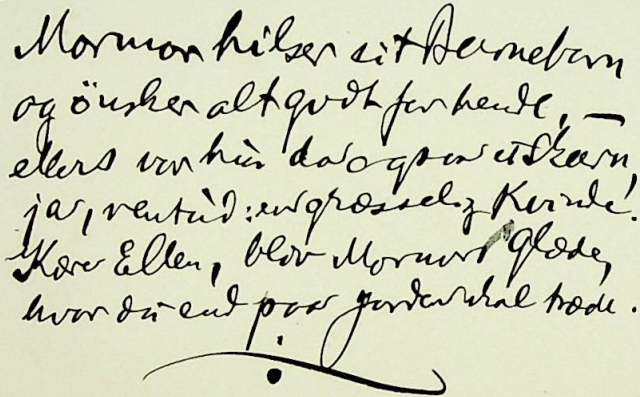 Mormor hilser sit Barnebarn
og önsker alt godt for hende, —
ellers var hun da ogsaa et Skarn,
ja, rentud: en græsselig Kvinde!
Kære Ellen, bliv Mormors Glæde,
hvor du end paa Jorden skal træde.